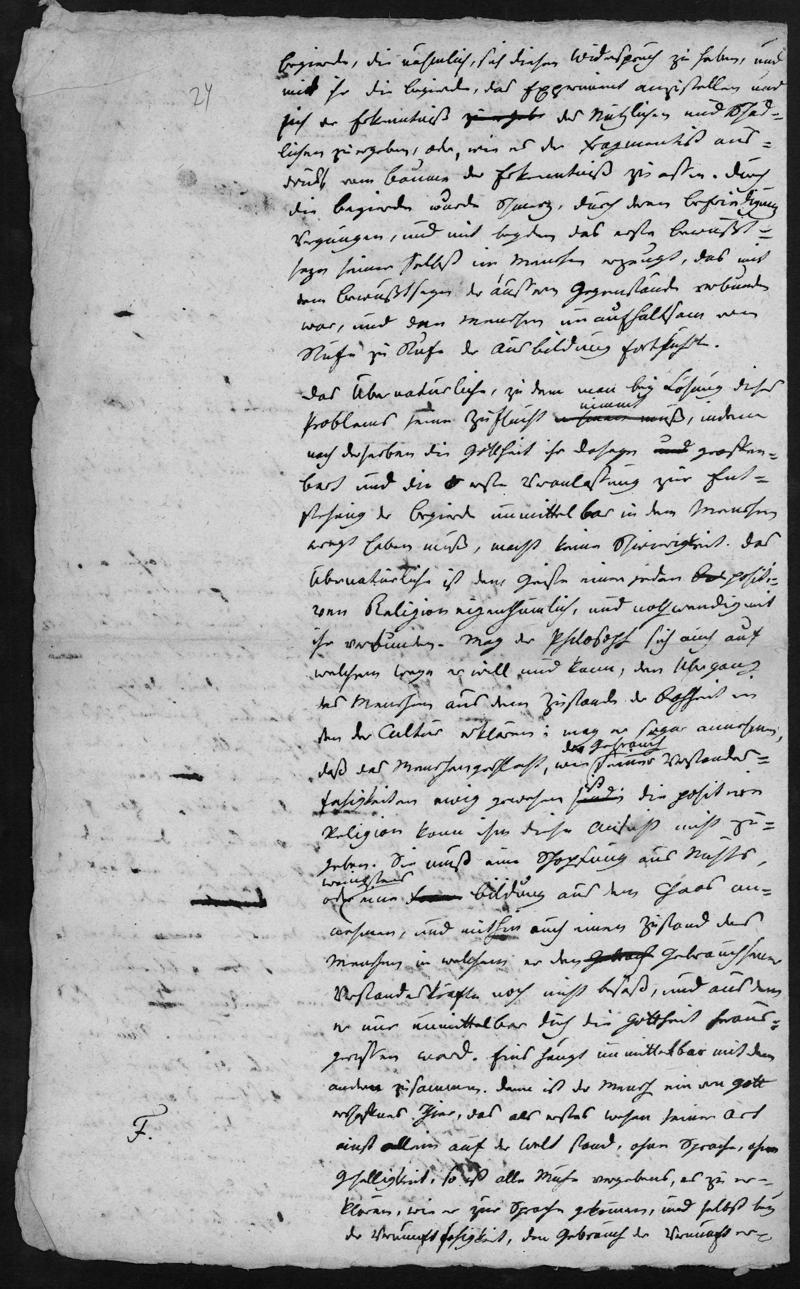 24
begierde, die nähmlich, sich diesen Widerspruch zu heben, und
mit ihr die begierde, das Experiment anzustellen und
sich der Erkenntniß des Nützlichen und Schäd-
lichen zu ergeben, oder, wie es der Fragmentist aus-
drückt vom baume der Erkenntniß zu essen. Durch
die begierde wurde Schmerz, durch deren befriedigung
Vergnügen, und mit beyden das erste bewußt-
seyn seiner Selbst im Menschen erzeugt, das mit
dem bewußtseyn der äussern Gegenstände verbunden
war, und den Menschen unaufhaltsam von
Stufe zu Stufe der Ausbildung fortführte.
Das Übernatürliche, zu dem man bey Lösung dieses
Problems seine Zuflucht nimmt, indem
nach derselben die Gottheit ihr daseyn geoffen-
bart und die erste Veranlassung zur Ent-
stehung der begierde unmittelbar in dem Menschen
erregt haben muß, macht keine Schwierigkeit. Das
Übernatürliche ist dem Geiste einer jeden positi-
ven Religion eigenthümlich, und nothwendig mit
ihr verbunden. Mag der Philosoph sich auch auf
welchem wege er will und kann, den Übergang
des Menschen aus dem Zustande der Rohheit in
den der Cultur erklären; mag er sogar annehmen,
daß das Menschengeschlecht, wie der Gebrauch seiner Verstandes-
fähigkeiten ewig gewesen ist die positive
Religion kann ihm diese Ansicht nicht zu-
geben. Sie muß eine Schöpfung aus Nichts,
oder wenigstens eine bildung aus dem Chaos an-
nehmen, und mithin auch einen Zustand des
Menschen in welchem er den Gebrauch seiner
Verstandeskräfte noch nicht besaß, und aus dem
er nur unmittelbar durch die Gottheit heraus-
gerissen ward. Eins hängt unmittelbar mit dem
andern zusammen. Denn ist der Mensch ein von Gott
erschaffenes Thier, das als erstes wesen seiner Art
einst allein auf der Welt stand, ohne Sprache, ohne
Geselligkeit, so ist alle Mühe vergebens, es zu er-
klären, wie er zur Sprache gekommen, und selbst bey
der Vernunftfähigkeit, den Gebrauch der Vernunft er-
F.